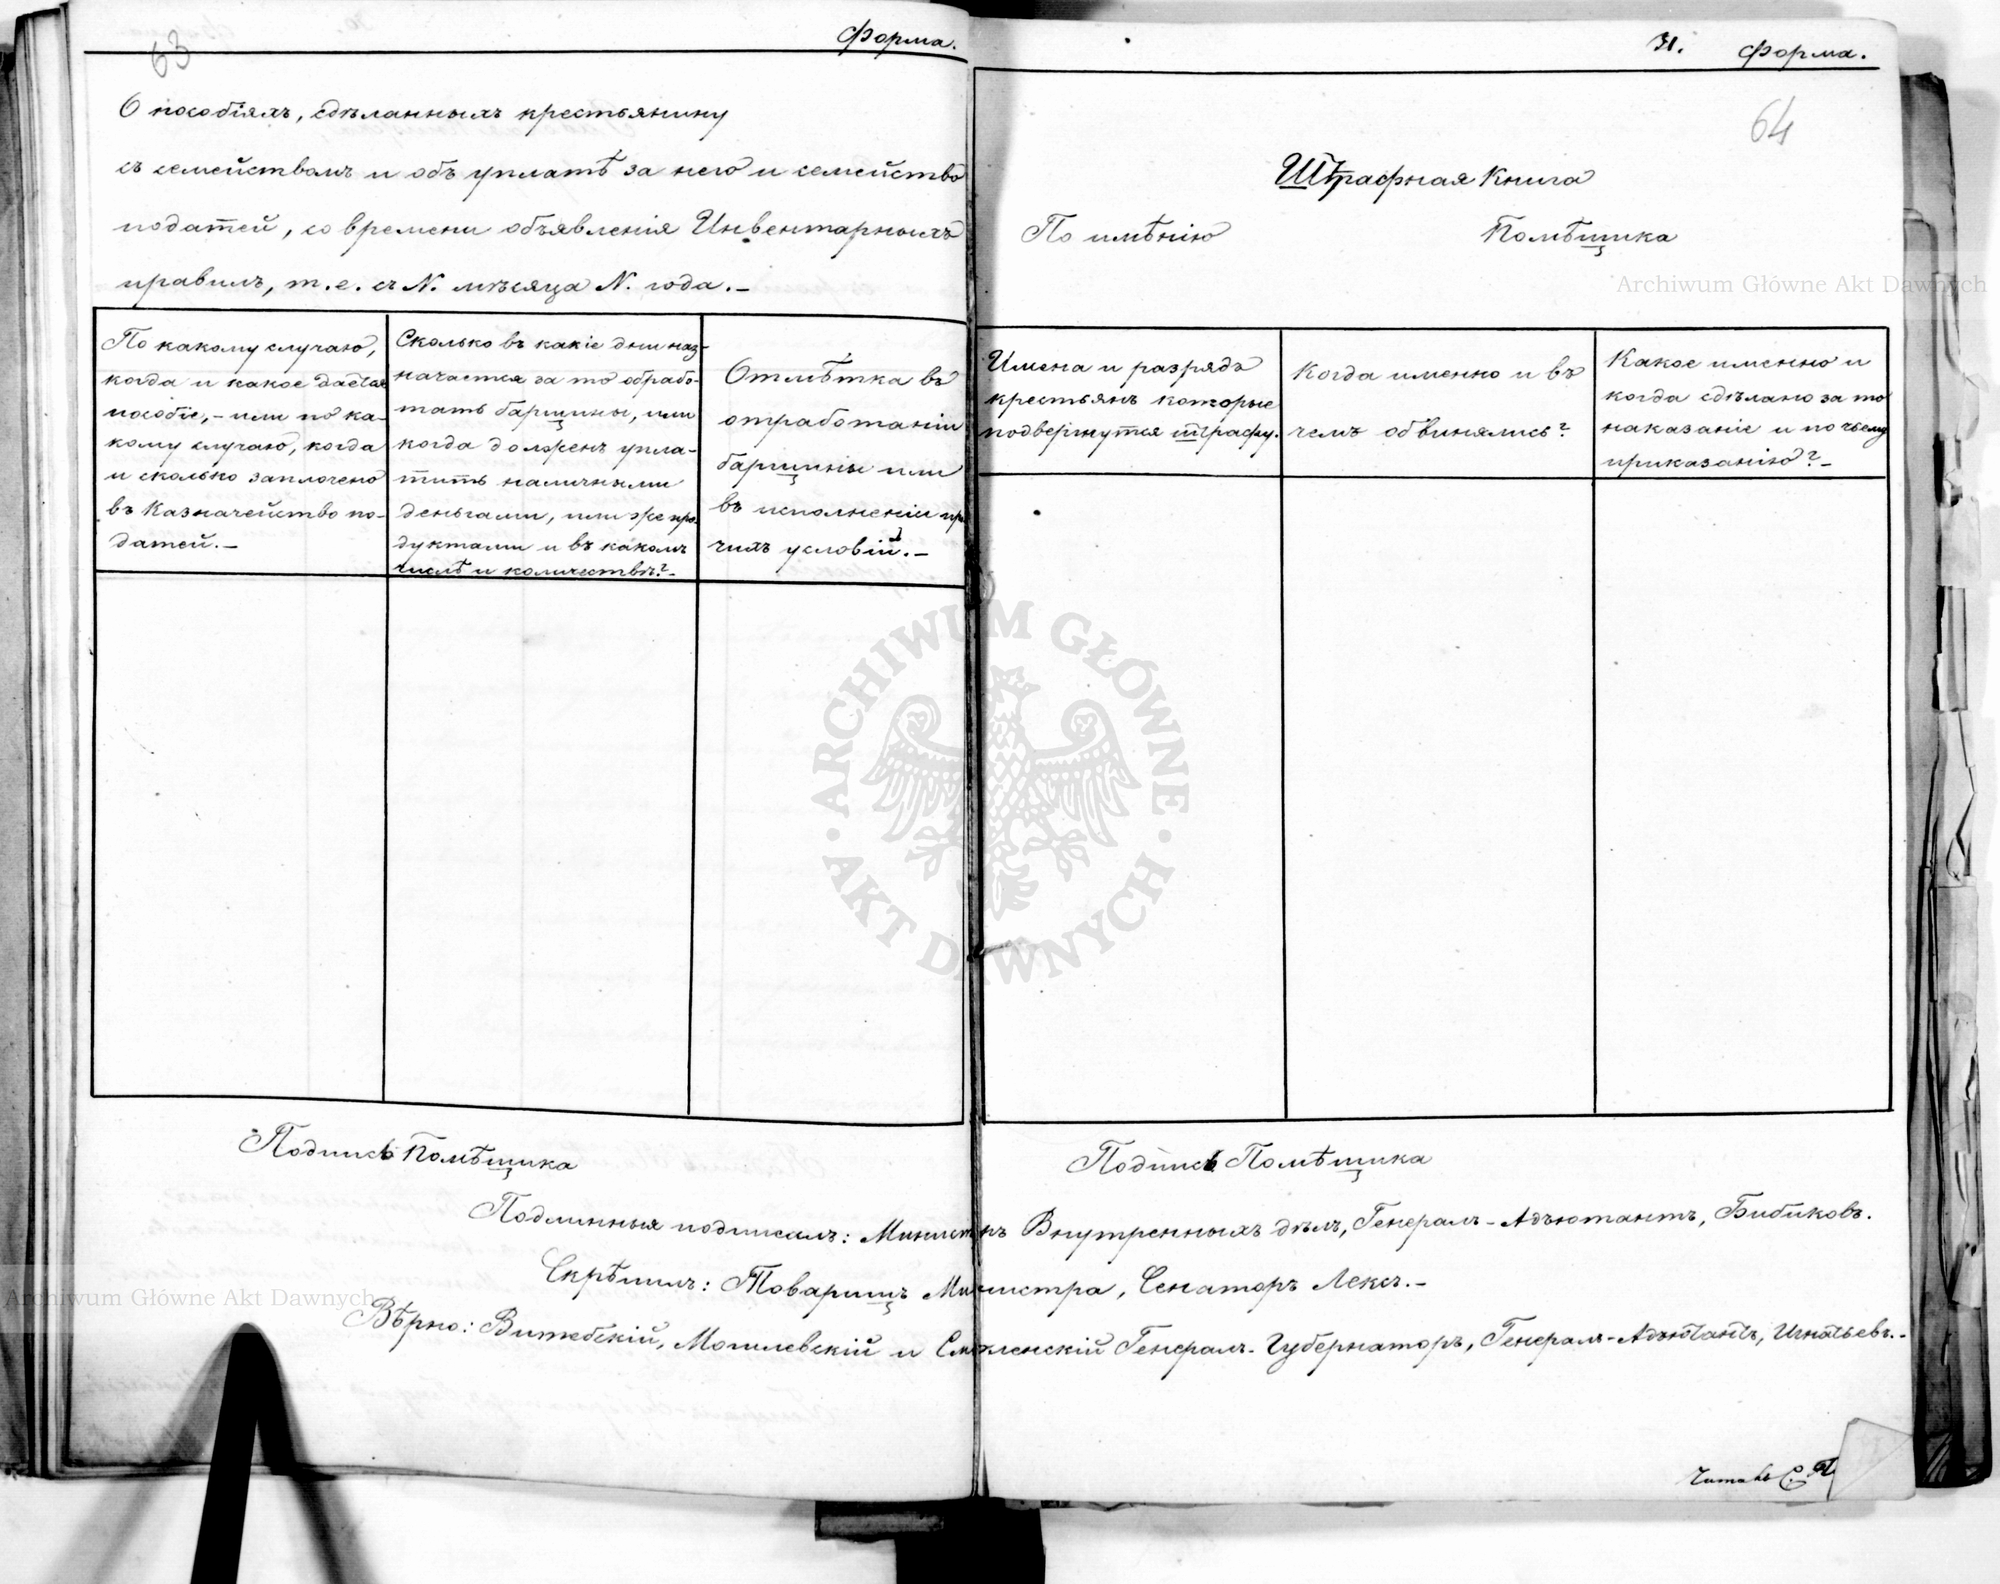 63
Форма.
О пособіяхъ, сдѣланныхъ крестьянину
съ семействомъ и объ уплатѣ за него и семейство
податей, со времени объявленія Инвентарныхъ
правилъ, т.е. съ N. мѣсяца N. года.–
По какому случаю,
когда и какое дается
пособіе,– или по ка-
кому случаю, когда
и сколько заплочено
въ Казначейство по-
датей.–
Сколько въ какіе дни наз-
начается за то обрабо-
тать барщины, или
когда долженъ упла-
тить наличными
деньгами, или же про-
дуктами и въ какомъ
числѣ и количествѣ?–
Отмѣтка въ
отработаніи
барщины или
въ исполненіи про
чихъ условій.–
31. Форма.
64
Штрафная Книга
По имѣнію Помѣщика
Имена и разрядъ
крестьянъ которые
подвергнутся штрафу.
Когда именно и въ
чемъ обвинялись?
Какое именно и
когда сдѣлано за то
наказаніе и по чьему
приказанію?–
Подпись Помѣщика
Подпись Помѣщика
Подлинныя подписалъ: Министръ Внутренныхъ дѣлъ, Генералъ-Адъютантъ, Бибиковъ.
Скрѣпилъ: Товарищъ Министра, Сенаторъ Лексъ.–
Вѣрно: Витебскій, Могилевскій и Смоленскій Генералъ-Губернаторъ, Генералъ-Адъютантъ, Игнатьевъ.–
Читалъ С.
Archiwum Główne Akt Dawnych
ARCHIWUM GŁÓWNE
AKT DAWNYCH
Archiwum Główne Akt Dawnych